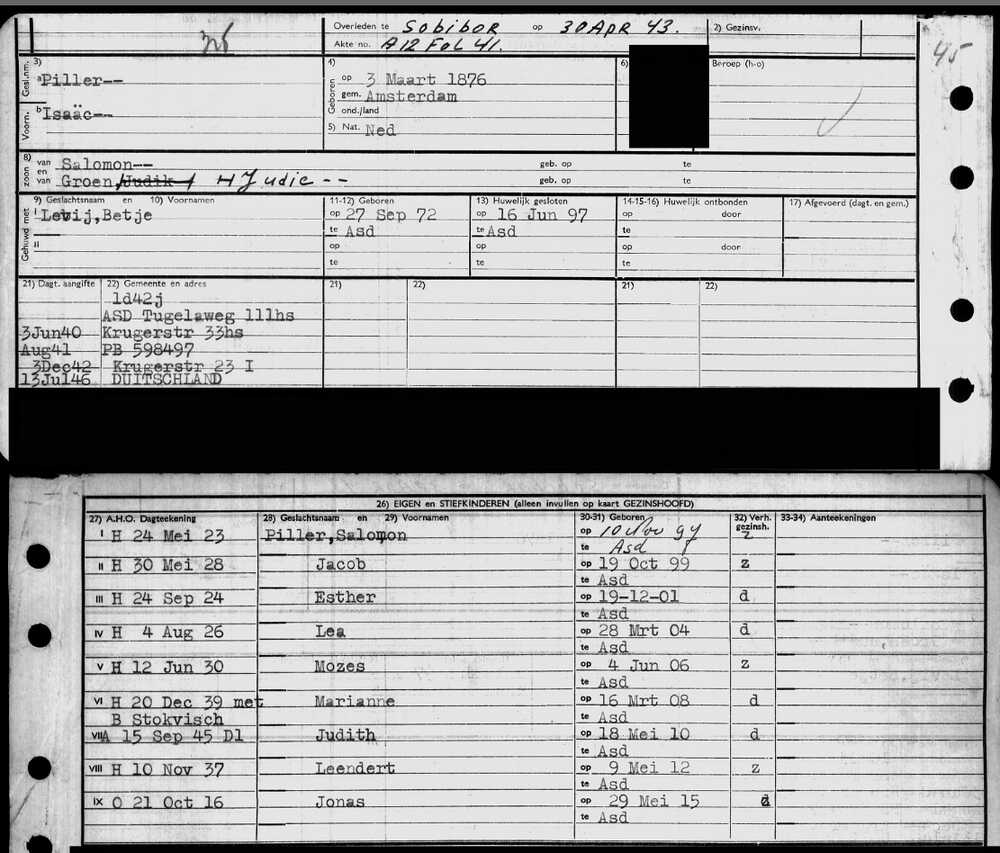 Overleden te Sobibor op 30 Apr 43. 2) Gezinsv.
Akte no. A12 Fol 41.
45
Gesl.nm. 3) a Piller--
Voorn. b Isaäc--
4) Geboren op 3 Maart 1876
gem. Amsterdam
ond./land
5) Nat. Ned
6)
Beroep (h-o)
8) zoon van Salomon-- geb. op te
en van Groen, /Judik / H Judic -- geb. op te
9) Geslachtsnaam en 10) Voornamen 11-12) Geboren 13) Huwelijk gesloten 14-15-16) Huwelijk ontbonden 17) Afgevoerd (dagt. en gem.)
Gehuwd met I Levij,Betje op 27 Sep 72 op 16 Jun 97 op door
te Asd te Asd te
II op op op door
te te te
21) Dagt. aangifte 22) Gemeente en adres 21) 22) 21) 22)
1d42j
ASD Tugelaweg 111hs
3Jun40 Krugerstr 33hs
Aug41 PB 598497
3Dec42 Krugerstr 23 I
13Jul46 DUITSCHLAND
26) EIGEN en STIEFKINDEREN (alleen invullen op kaart GEZINSHOOFD)
27) A.H.O. Dagteekening 28) Geslachtsnaam en 29) Voornamen 30-31) Geboren 32) Verh. gezinsh. 33-34) Aanteekeningen
I H 24 Mei 23 Piller,Salomon op 10 Nov 97 z
te Asd
II H 30 Mei 28 Jacob op 19 Oct 99 z
te Asd
III H 24 Sep 24 Esther op 19-12-01 d
te Asd
IV H 4 Aug 26 Lea op 28 Mrt 04 d
te Asd
V H 12 Jun 30 Mozes op 4 Jun 06 z
te Asd
VI H 20 Dec 39 met Marianne op 16 Mrt 08 d
B Stokvisch te Asd
VII A 15 Sep 45 Dl Judith op 18 Mei 10 d
te Asd
VIII H 10 Nov 37 Leendert op 9 Mei 12 z
te Asd
IX O 21 Oct 16 Jonas op 29 Mei 15
te Asd